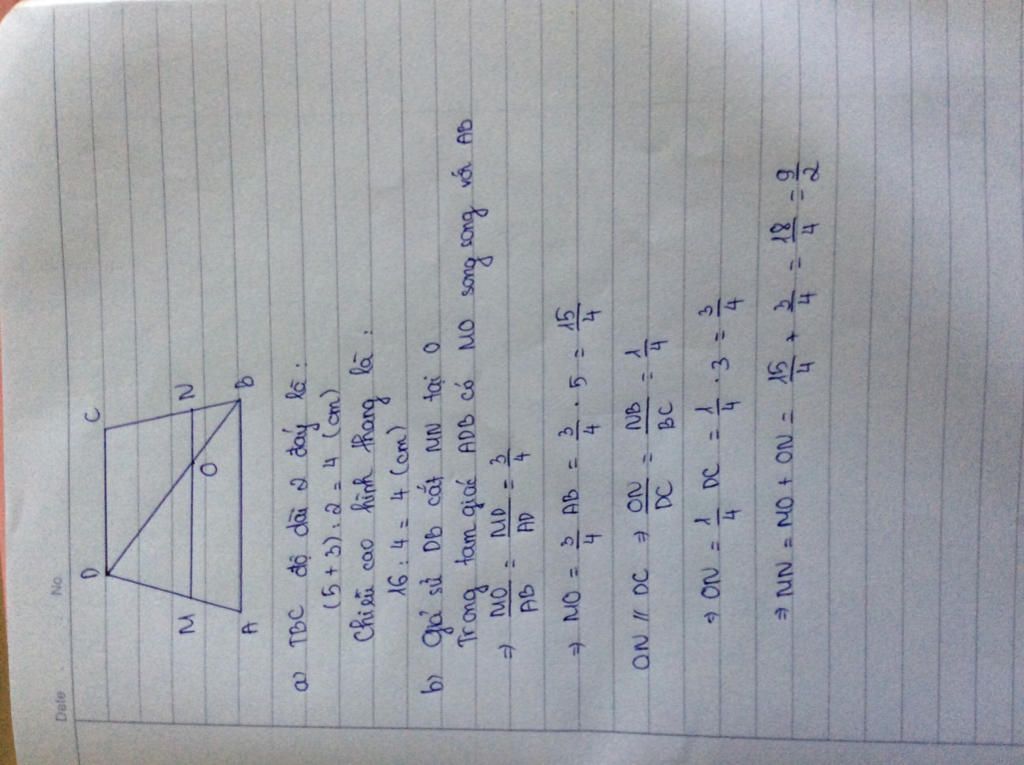 Date No.
D C
M N
O
A B
a) TBC độ dài 2 đáy là :
(5 + 3) : 2 = 4 (cm)
Chiều cao hình thang là :
16 : 4 = 4 (cm)
b) Giả sử DB cắt MN tại O
Trong tam giác ADB có MO song song với AB
⇒ MO/AB = MD/AD = 3/4
⇒ MO = 3/4 AB = 3/4 . 5 = 15/4
ON // DC ⇒ ON/DC = NB/BC = 1/4
⇒ ON = 1/4 DC = 1/4 . 3 = 3/4
⇒ MN = MO + ON = 15/4 + 3/4 = 18/4 = 9/2